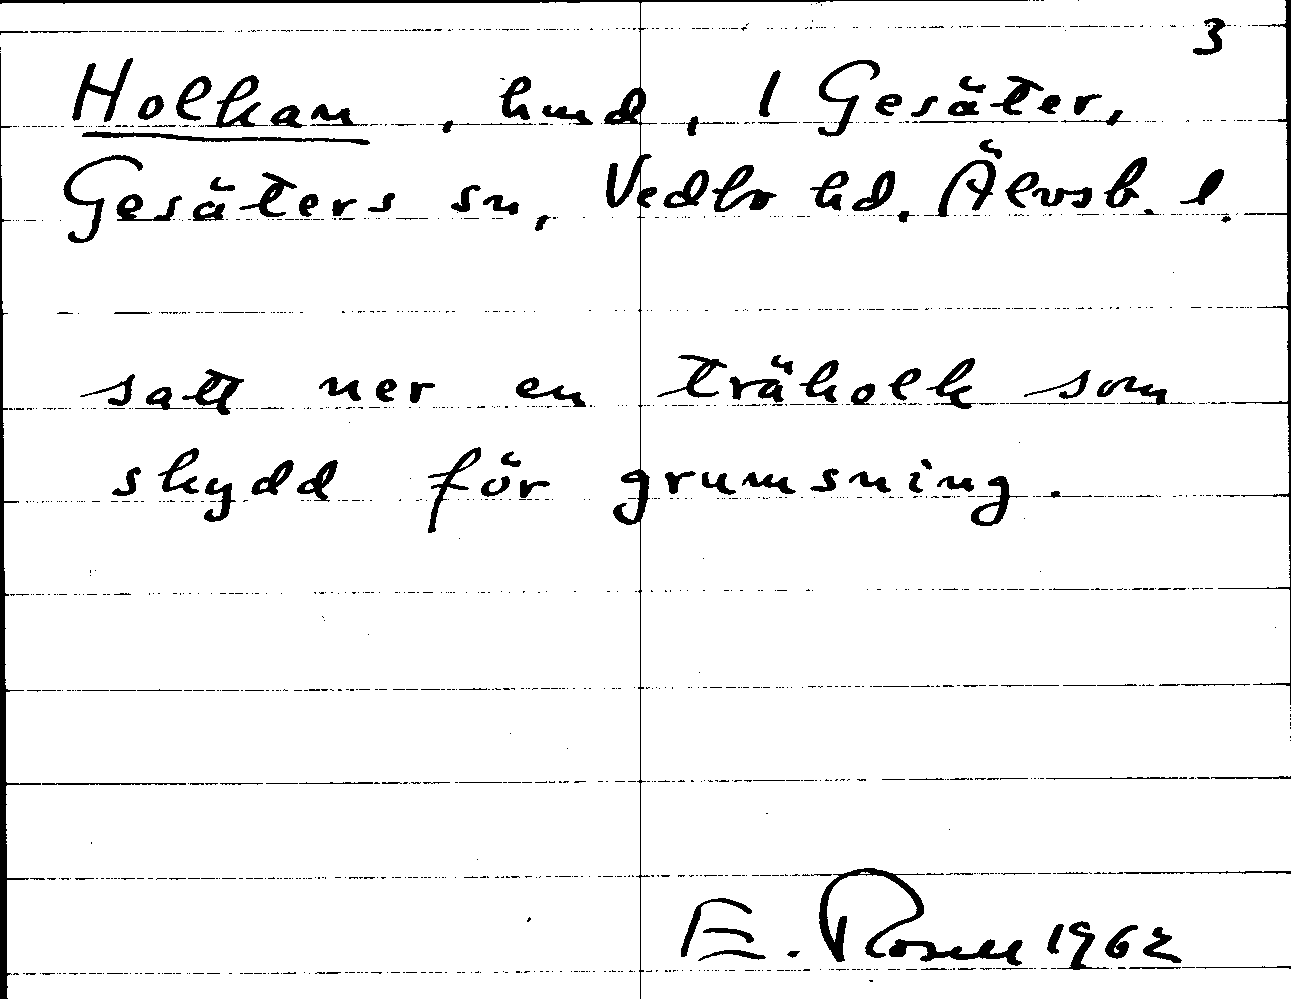 3
Holkan, hmd, 1 Gesäter,
Gesäters sn, Vedbo hd. Älvsb. l.
satt ner en träholk som
skydd för grumsning.
E. Rosell 1962